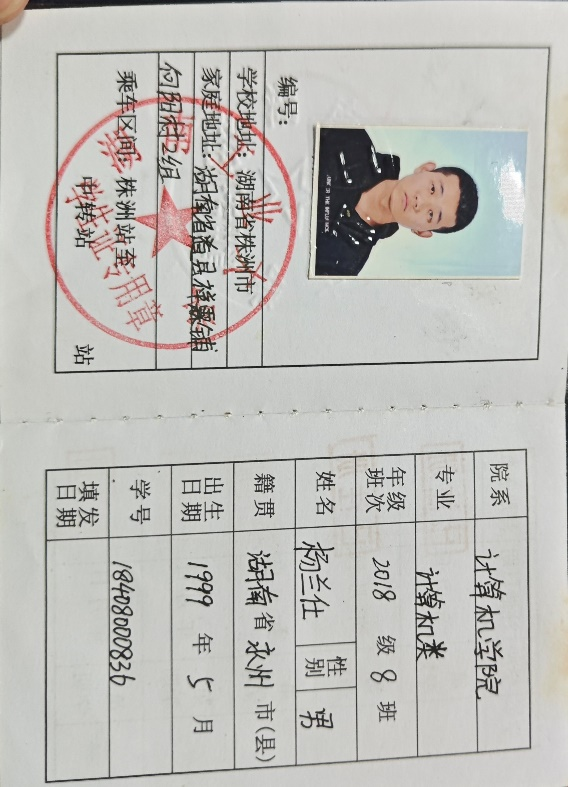 编号:
学校地址: 湖南省株洲市
家庭地址: 湖南省道县祥霖铺
向阳村2组
乘车区间: 株洲站至 站
中转站
证专用章
院系 计算机学院
专业 计算机类
年级班次 2018 级 8 班
姓名 杨兰仕 性别 男
籍贯 湖南省永州市(县)
出生日期 1999 年 5 月
学号 18408000836
填发日期